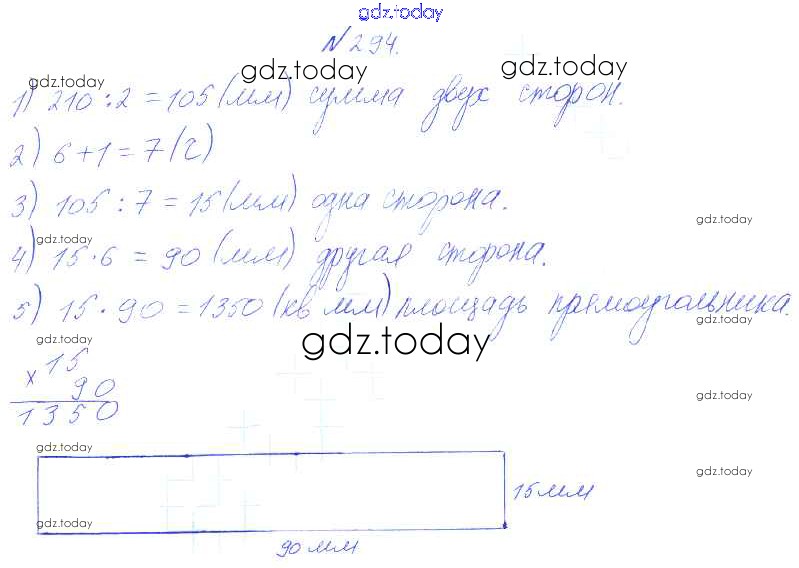 gdz.today
№ 294.
gdz.today
gdz.today
gdz.today
1) 210 : 2 = 105 (мм) сумма двух сторон.
2) 6 + 1 = 7 (ч)
3) 105 : 7 = 15 (мм) одна сторона.
gdz.today
gdz.today
4) 15 · 6 = 90 (мм) другая сторона.
5) 15 · 90 = 1350 (кв мм) площадь прямоугольника.
gdz.today
gdz.today
gdz.today
× 15
90
1350
gdz.today
gdz.today
gdz.today
15 мм
gdz.today
90 мм